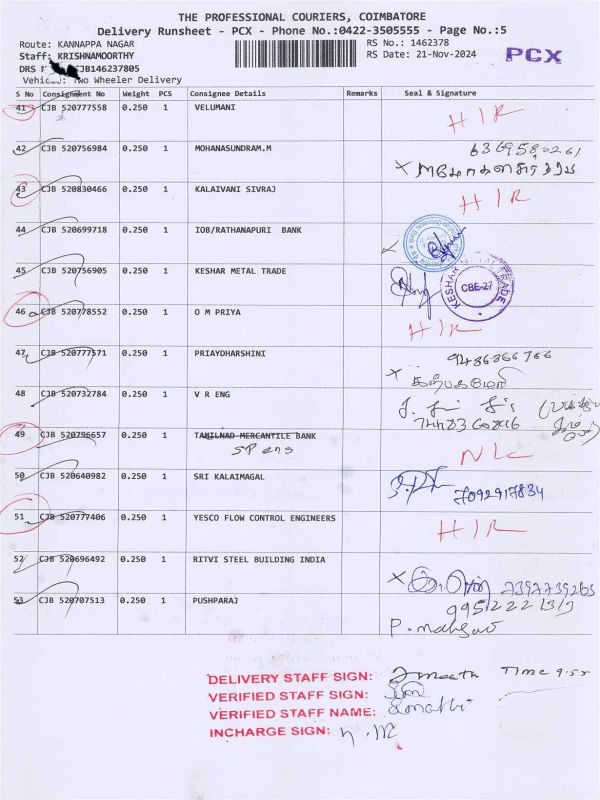 THE PROFESSIONAL COURIERS, COIMBATORE
Delivery Runsheet - PCX - Phone No.:0422-3505555 - Page No.:5
Route: KANNAPPA NAGAR RS No.: 1462378
Staff: KRISHNAMOORTHY RS Date: 21-Nov-2024 PCX
DRS CJB146237805
Vehicle: Two Wheeler Delivery
S No Consignment No Weight PCS Consignee Details Remarks Seal & Signature
41 CJB 520777558 0.250 1 VELUMANI H I R
42 CJB 520756984 0.250 1 MOHANASUNDRAM.M
43 CJB 520830466 0.250 1 KALAIVANI SIVRAJ H I R
44 CJB 520699718 0.250 1 IOB/RATHANAPURI BANK
45 CJB 520756905 0.250 1 KESHAR METAL TRADE
KESHAR TRADE CBE-27
46 CJB 520778552 0.250 1 O M PRIYA H I R
47 CJB 520777571 0.250 1 PRIAYDHARSHINI
48 CJB 520732784 0.250 1 V R ENG
49 CJB 520796657 0.250 1 TAMILNAD MERCANTILE BANK
SP eng
50 CJB 520640982 0.250 1 SRI KALAIMAGAL 7092917834
51 CJB 520777406 0.250 1 YESCO FLOW CONTROL ENGINEERS H I R
52 CJB 520696492 0.250 1 RITVI STEEL BUILDING INDIA 7397739263
53 CJB 520707513 0.250 1 PUSHPARAJ
DELIVERY STAFF SIGN: TIME 9:55
VERIFIED STAFF SIGN:
VERIFIED STAFF NAME:
INCHARGE SIGN: